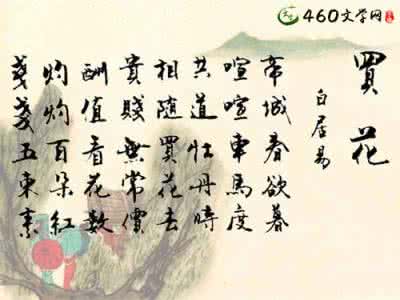 460文学网
買花
白居易
帝城春欲暮
喧喧車馬度
共道牡丹時
相隨買花去
貴賤無常價
酬值看花數
灼灼百朵紅
戔戔五束素